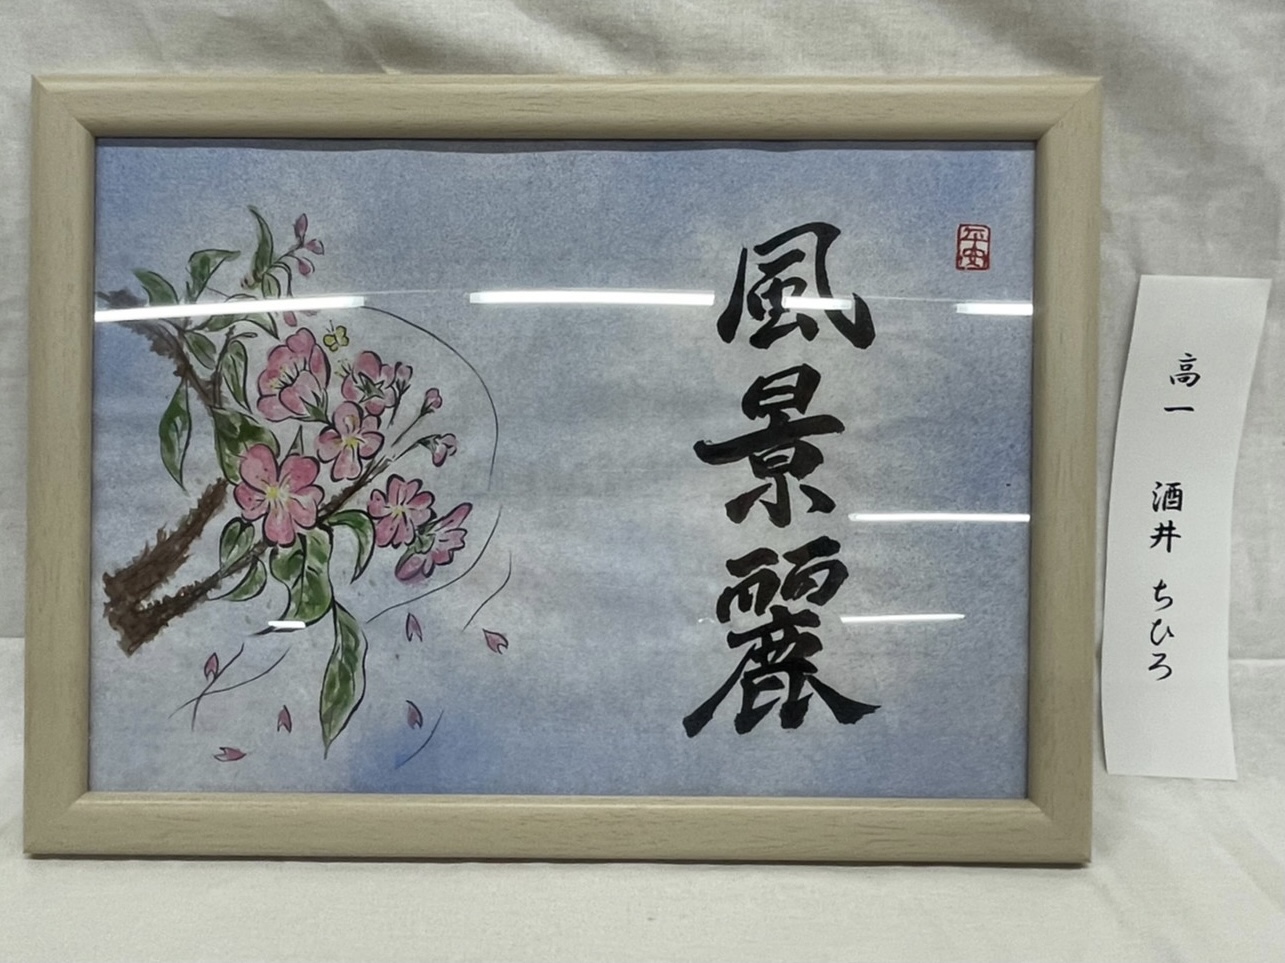 平安
風景麗
高一 酒井 ちひろ